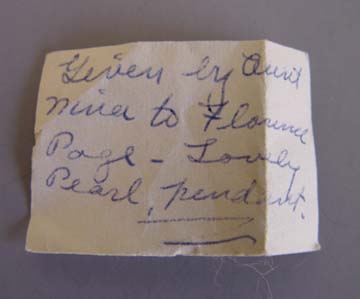 Given by Aunt
Nina to Florence
Page - Lovely
Pearl, pendant.